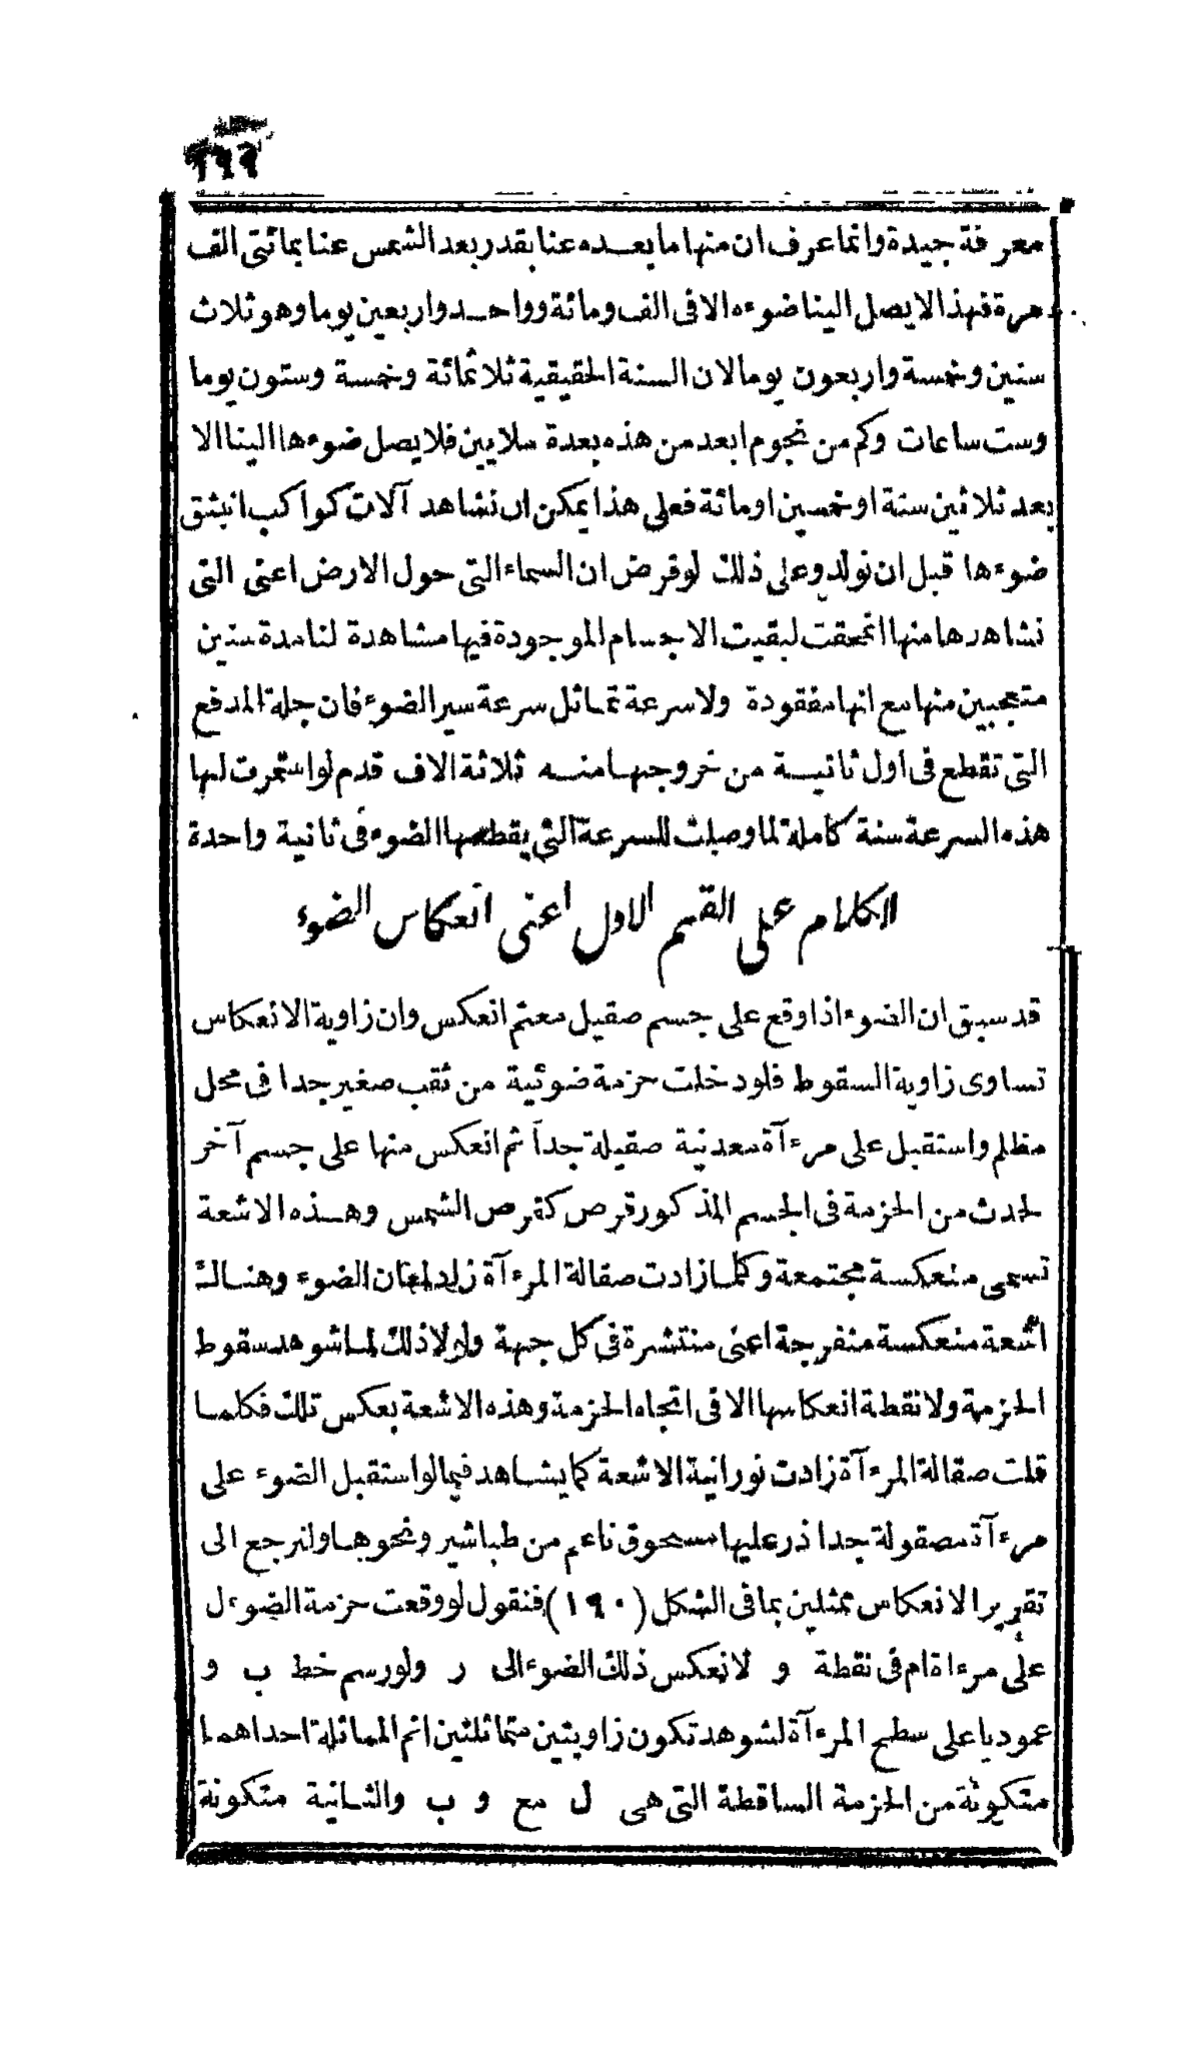 معرفة جيدة وانما عرف ان منها ما بعده عنا بقدر بعد الشمس عنا بمائتى الف
مرة فهذا لا يصل الينا ضوءه الا فى الف ومائة وواحد واربعين يوما وهو ثلاث
سنين وخمسة واربعون يوما لان السنة الحقيقية ثلاثمائة وخمسة وستون يوما
وست ساعات وكم من نجوم ابعد من هذه بعدة ملايين فلا يصل ضوءها الينا الا
بعد ثلاثين سنة او خمسين او مائة فعلى هذا يمكن ان نشاهد آلات كواكب انبثق
ضوءها قبل ان نولد وعلى ذلك لو فرض ان السماء التى حول الارض اعنى التى
نشاهدها منها انمحقت لبقيت الاجسام الموجودة فيها مشاهدة لنا مدة سنين
متعجبين منها مع انها مفقودة ولا سرعة تماثل سرعة سير الضوء فان جلة المدفع
التى تقطع فى اول ثانيسة من خروجها منه ثلاثة الاف قدم لو استمرت لها
هذه السرعة سنة كاملة لما وصلت للسرعة التى يقطعها الضوء فى ثانية واحدة
الكلام على القسم الاول اعنى انعكاس الضوء
قد سبق ان الضوء اذا وقع على جسم صقيل معتم انعكس وان زاوية الانعكاس
تساوى زاوية السقوط فلو دخلت حزمة ضوئية من ثقب صغير جدا فى محل
مظلم واستقبل على مرءآة معدنية صقيلة جداً ثم انعكس منها على جسم آخر
لحدث من الحزمة فى الجسم المذكور قرص كقرص الشمس وهذه الاشعة
تسمى منعكسة مجتمعة وكلما زادت صقالة المرءآة زاد لمعان الضوء وهناك
اشعة منعكسة منفرجة اعنى منتشرة فى كل جهة ولولا ذلك لما شوهد سقوط
الحزمة ولا نقطة انعكاسها الا فى اتجاه الحزمة وهذه الاشعة بعكس تلك فكلما
قلت صقالة المرءآة زادت نورانية الاشعة كما يشاهد فيما لو استقبل الضوء على
مرءآة مصقولة جدا ذر عليها مسحوق ناعم من طباشير ونحوها ولنرجع الى
تقرير الانعكاس ممثلين بما فى الشكل (١٩٠) فنقول لو وقعت حزمة الضوء ل
على مرءاة ام فى نقطة و لانعكس ذلك الضوء الى ر ولو رسم خط ب و
عموديا على سطح المرءآة لشوهد تكون زاويتين متماثلتين اتم المماثلة احداهما
متكونة من الحزمة الساقطة التى هى ل مع و ب والثانية متكونة